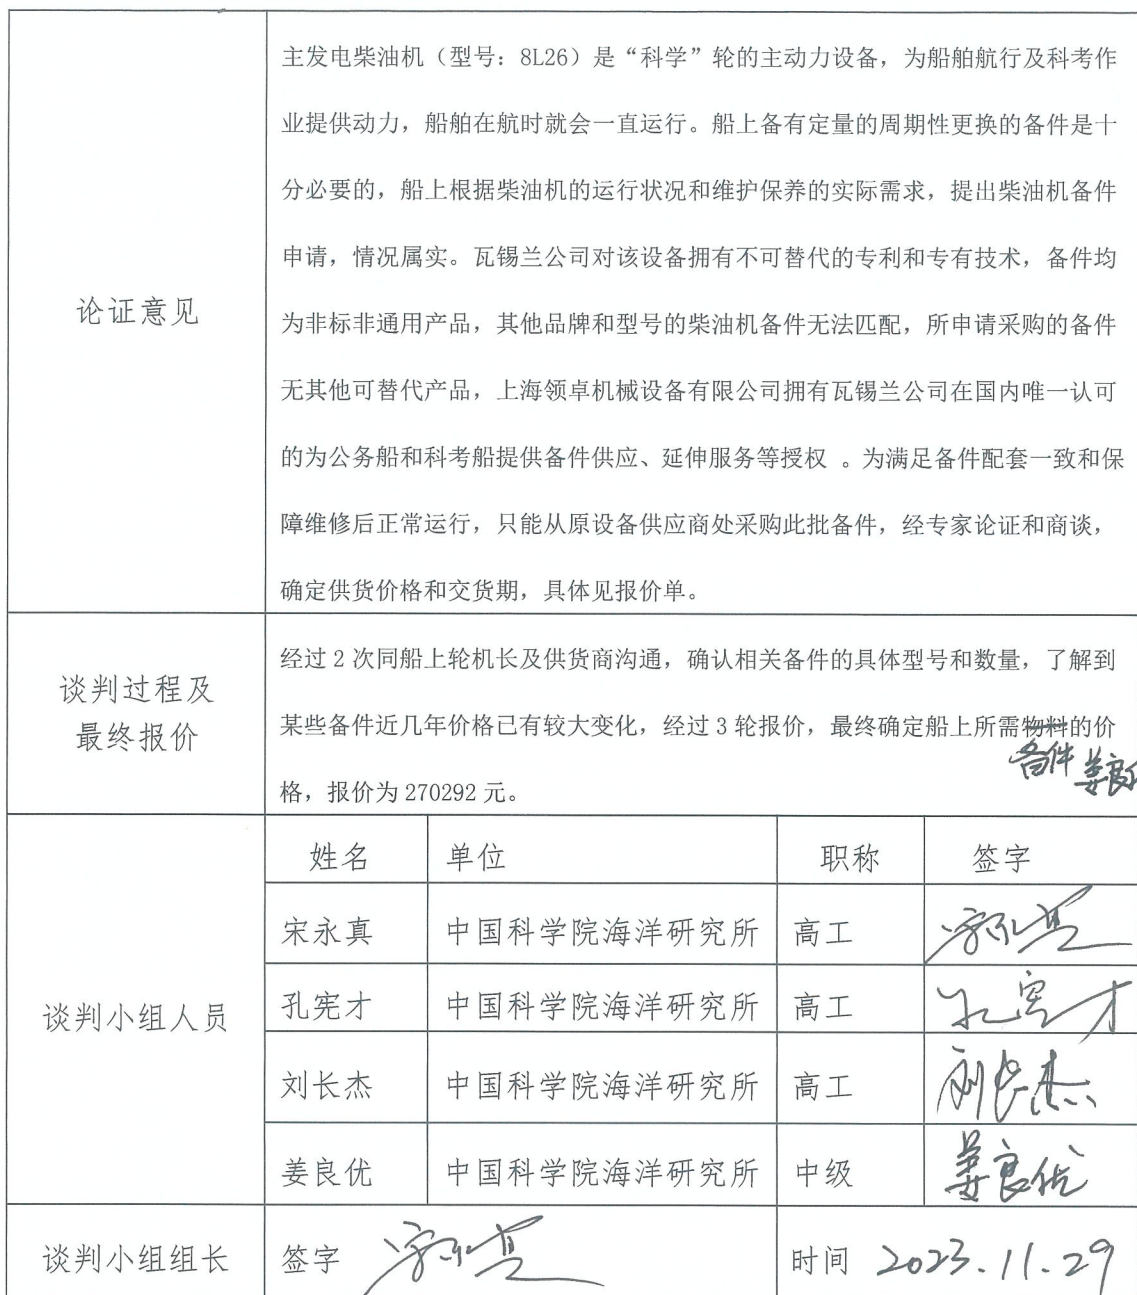 主发电柴油机（型号：8L26）是“科学”轮的主动力设备，为船舶航行及科考作
业提供动力，船舶在航时就会一直运行。船上备有定量的周期性更换的备件是十
分必要的，船上根据柴油机的运行状况和维护保养的实际需求，提出柴油机备件
申请，情况属实。瓦锡兰公司对该设备拥有不可替代的专利和专有技术，备件均
论证意见
为非标非通用产品，其他品牌和型号的柴油机备件无法匹配，所申请采购的备件
无其他可替代产品，上海领卓机械设备有限公司拥有瓦锡兰公司在国内唯一认可
的为公务船和科考船提供备件供应、延伸服务等授权 。为满足备件配套一致和保
障维修后正常运行，只能从原设备供应商处采购此批备件，经专家论证和商谈，
确定供货价格和交货期，具体见报价单。
谈判过程及
最终报价
经过 2 次同船上轮机长及供货商沟通，确认相关备件的具体型号和数量，了解到
某些备件近几年价格已有较大变化，经过 3 轮报价，最终确定船上所需物料的价
备件 姜良优
格，报价为 270292 元。
谈判小组人员
姓名 单位 职称 签字
宋永真 中国科学院海洋研究所 高工 宋永真
孔宪才 中国科学院海洋研究所 高工 孔宪才
刘长杰 中国科学院海洋研究所 高工 刘长杰
姜良优 中国科学院海洋研究所 中级 姜良优
谈判小组组长 签字 宋永真 时间 2023.11.29